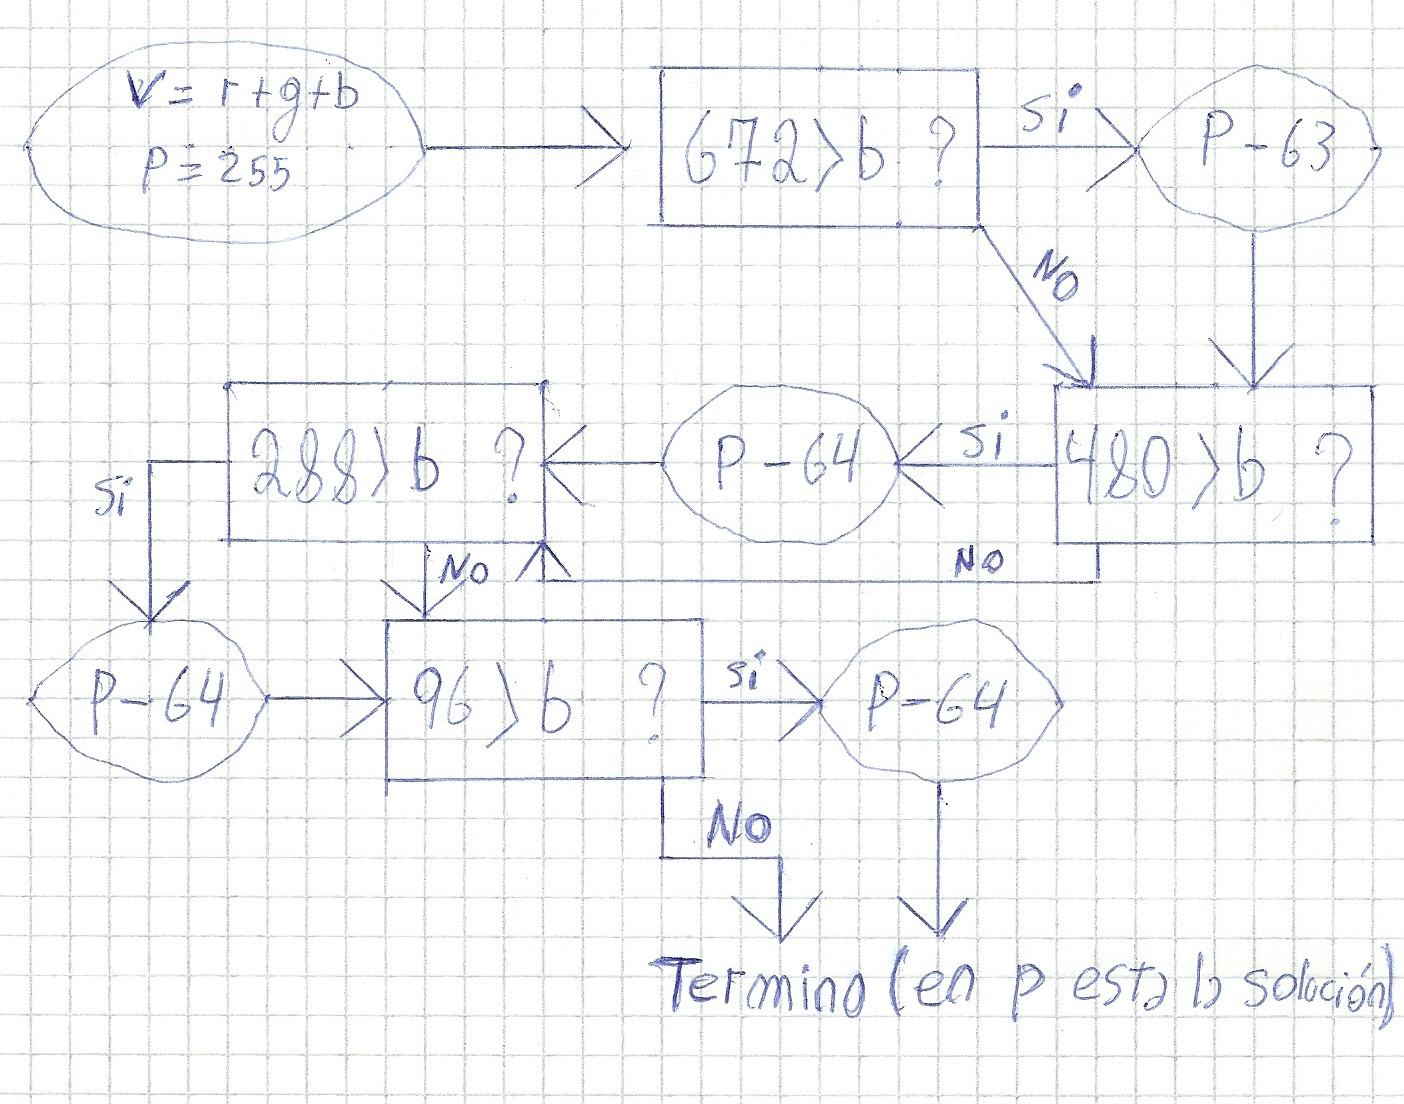 V = r+g+b
P = 255
672>b ?
Si
P-63
NO
480>b ?
Si
P-64
288>b ?
Si
NO
NO
P-64
96>b ?
si
P-64
NO
Termino (en p esta la solución)